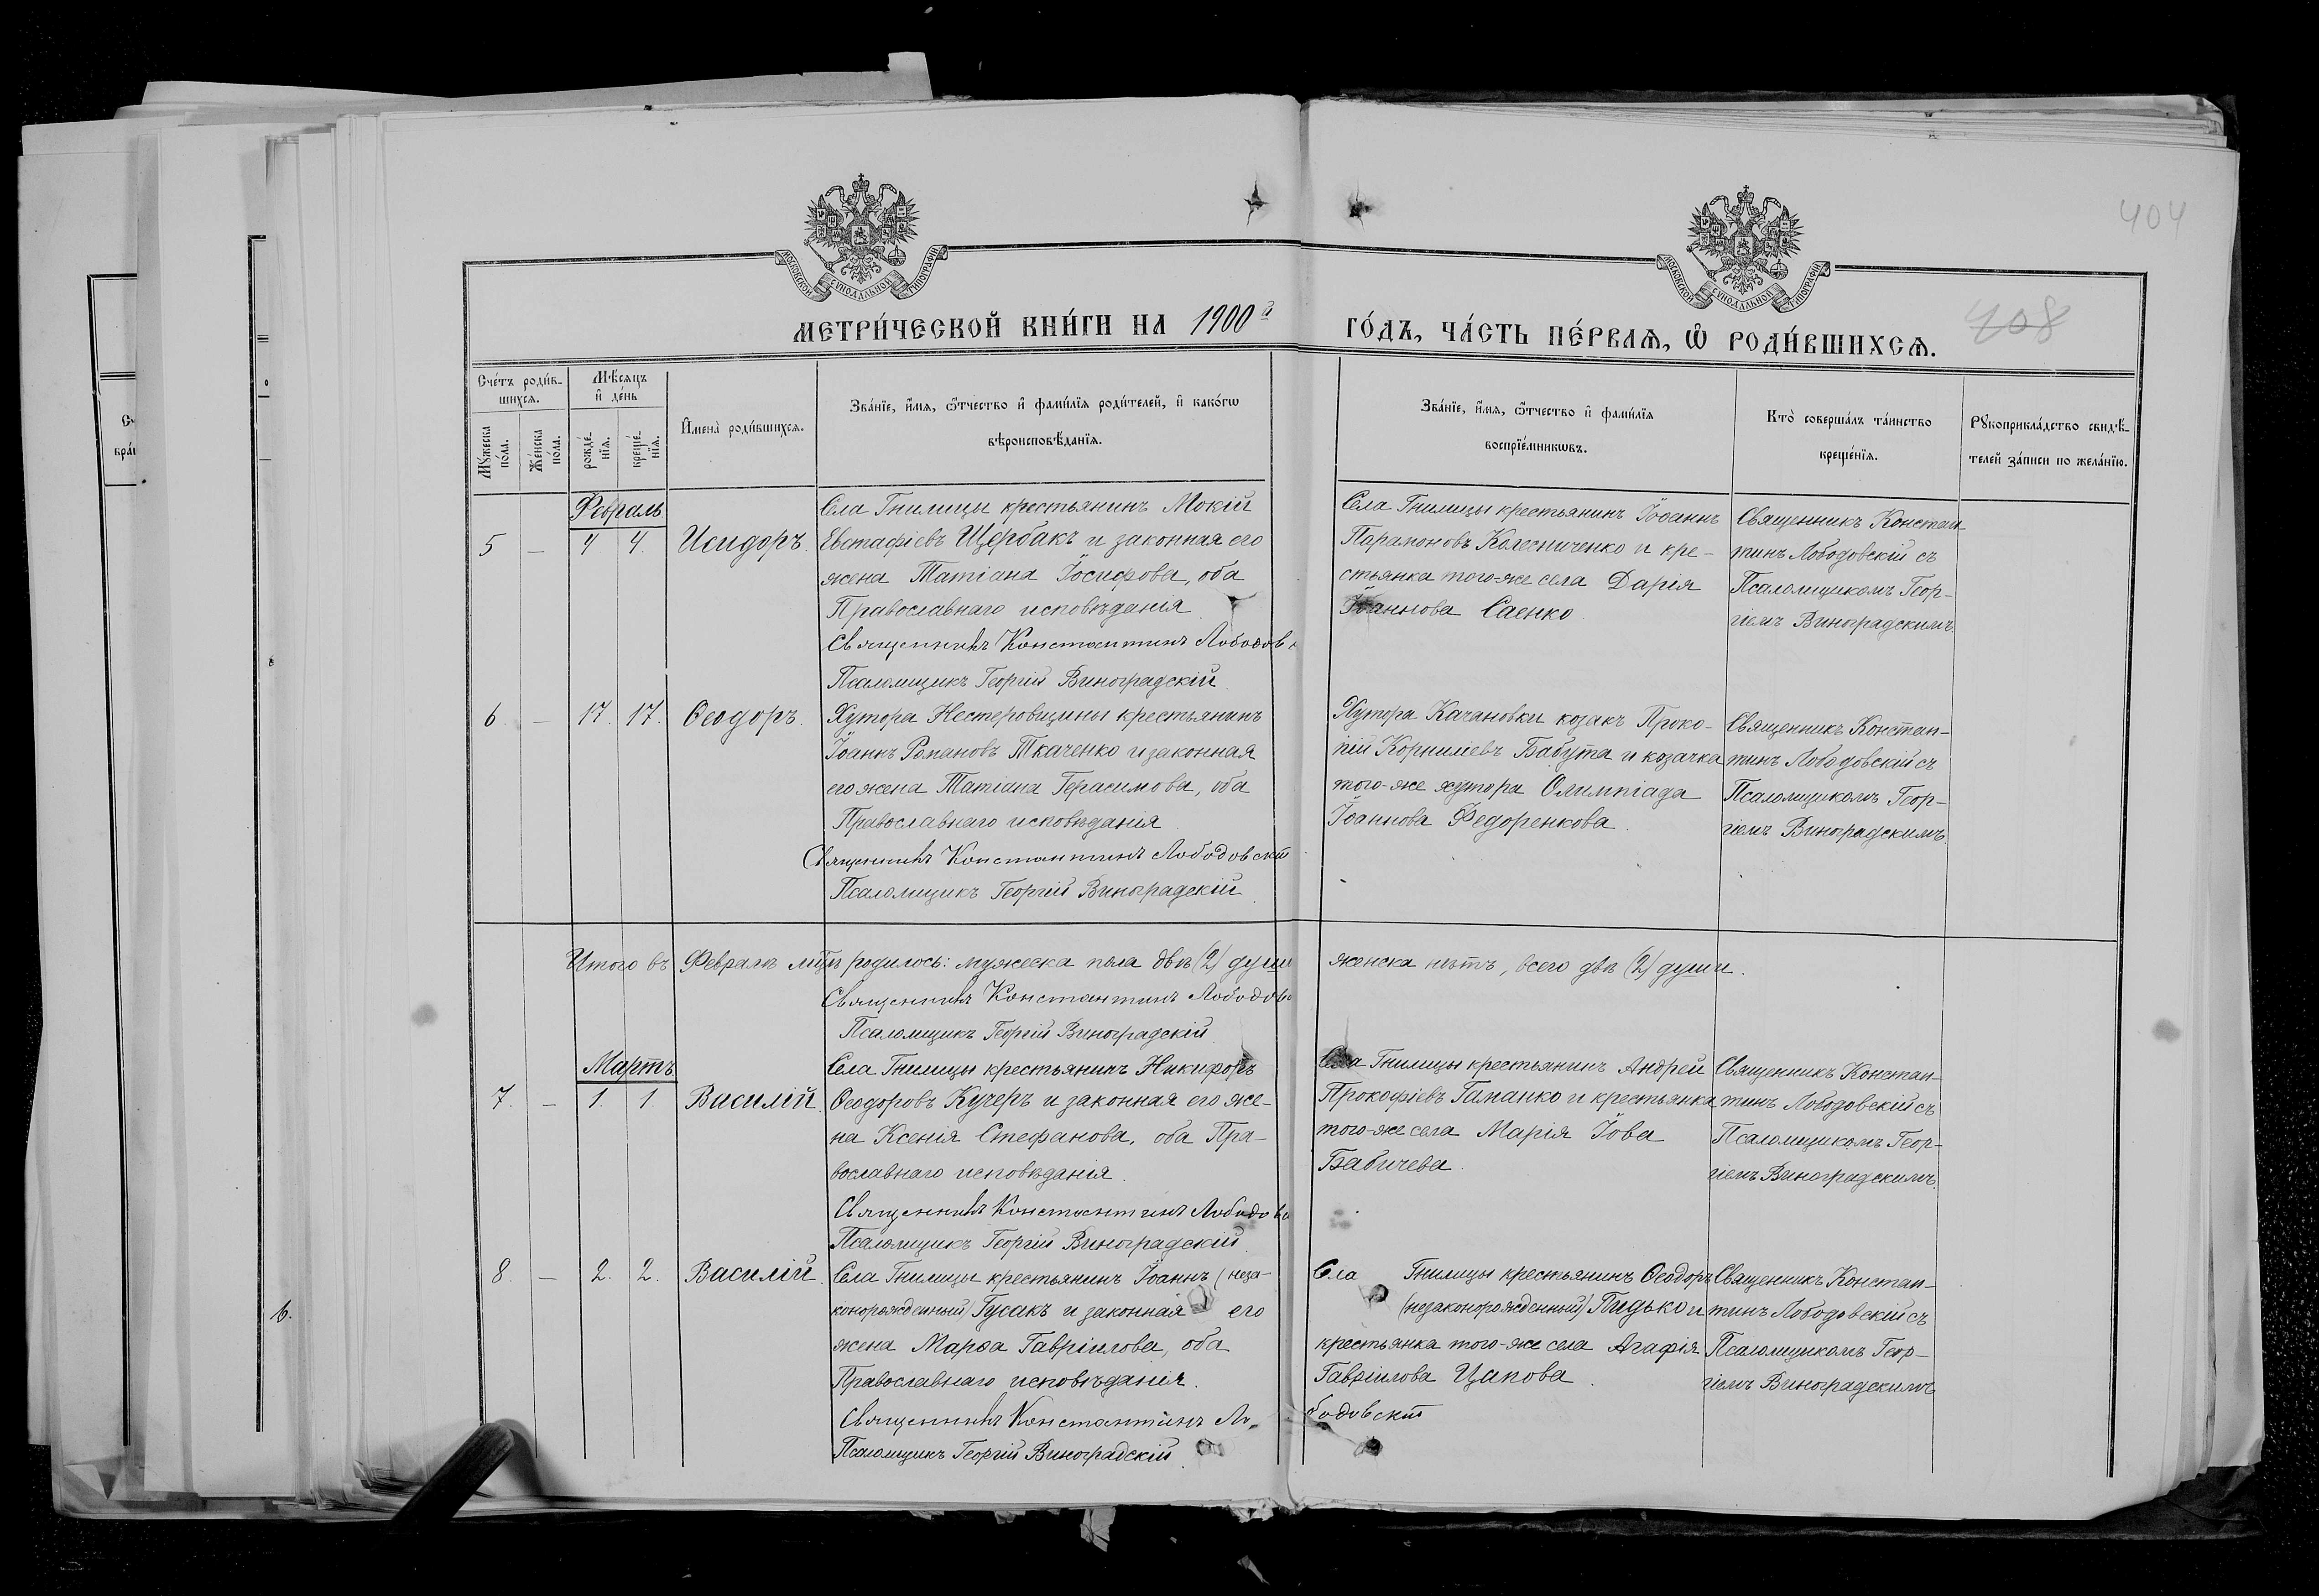 404
МОСКОВСКОЙ СѴНОДАЛЬНОЙ ТИПОГРАФІИ
МОСКОВСКОЙ СѴНОДАЛЬНОЙ ТИПОГРАФІИ
МЕТРИ́ЧЕСКОЙ КНИ́ГИ НА 1900й ГО́ДЪ, ЧА́СТЬ ПЕ́РВАѦ, Ѡ РОДИ́ВШИХСѦ.
408
Сче́тъ роди́в-
шихсѧ.
Мꙋ́жеска
по́ла.
Же́нска
по́ла.
Мѣ́сѧцъ
и҆ де́нь
рожде́-
нїѧ.
креще́-
нїѧ.
И҆мена̀ роди́вшихсѧ.
Зва́нїе, и҆́мѧ, ѻ҆́тчество и҆ фами́лїѧ роди́телей, и҆ како́гѡ
вѣроисповѣ́данїѧ.
Зва́нїе, и҆́мѧ, ѻ҆́тчество и҆ фами́лїѧ
воспрїе́мникѡвъ.
Кто̀ соверша́лъ та́инство
креще́нїѧ.
Рꙋкоприкла́дство свидѣ́-
телей за́писи по жела́нїю.
Февраль
5 — 4 4. Исидоръ.
Села Гнилицы крестьянинъ Мокій
Евстафіевъ Щербакъ и законная его
жена Татіана Іосифова, оба
Православнаго исповѣданія
Священникъ Константинъ Лободов
Псаломщикъ Георгій Виноградскій
Села Гнилицы крестьянинъ Іоаннъ
Парамоновъ Колесниченко и кре-
стьянка того-же села Дарія
Іоаннова Саенко
Священникъ Констан-
тинъ Лободовскій съ
Псаломщикомъ Геор-
гіемъ Виноградскимъ.
6. — 17. 17. Ѳеодоръ.
Хутора Нестеровщины крестьянинъ
Іоаннъ Романовъ Ткаченко и законная
его жена Татіана Герасимова, оба
Православнаго исповѣданія
Священникъ Константинъ Лободовскій
Псаломщикъ Георгій Виноградскій
Хутора Качановки козакъ Проко-
пій Корниліевъ Бабута и козачка
того-же хутора Олимпіада
Іоаннова Федоренкова.
Священникъ Констан-
тинъ Лободовскій съ
Псаломщикомъ Геор-
гіемъ Виноградскимъ.
Итого въ Февралѣ мцѣ родилось: мужеска пола двѣ (2) души женска нѣтъ, всего двѣ (2) души.
Священникъ Константинъ Лободов
Псаломщикъ Георгій Виноградскій
Мартъ
7. — 1. 1. Василій.
Села Гнилицы крестьянинъ Никифоръ
Ѳеодоровъ Кучеръ и законная его же-
на Ксенія Стефанова, оба Пра-
вославнаго исповѣданія.
Священникъ Константинъ Лободов
Псаломщикъ Георгій Виноградскій.
Села Гнилицы крестьянинъ Андрей
Прокофіевъ Гаманко и крестьянка
того-же села Марія Іова
Бабичева.
Священникъ Констан-
тинъ Лободовскій съ
Псаломщикомъ Геор-
гіемъ Виноградскимъ.
8. — 2. 2. Василій.
Села Гнилицы крестьянинъ Іоаннъ (неза-
конорожденный) Гусакъ и законная его
жена Марѳа Гавріилова, оба
Православнаго исповѣданія.
Священникъ Константинъ Ло-бодовскій
Псаломщикъ Георгій Виноградскій.
Села Гнилицы крестьянинъ Ѳеодоръ
(незаконорожденный) Пидько и
крестьянка того-же села Агафія
Гавріилова Цапова.
Священникъ Констан-
тинъ Лободовскій съ
Псаломщикомъ Геор-
гіемъ Виноградскимъ